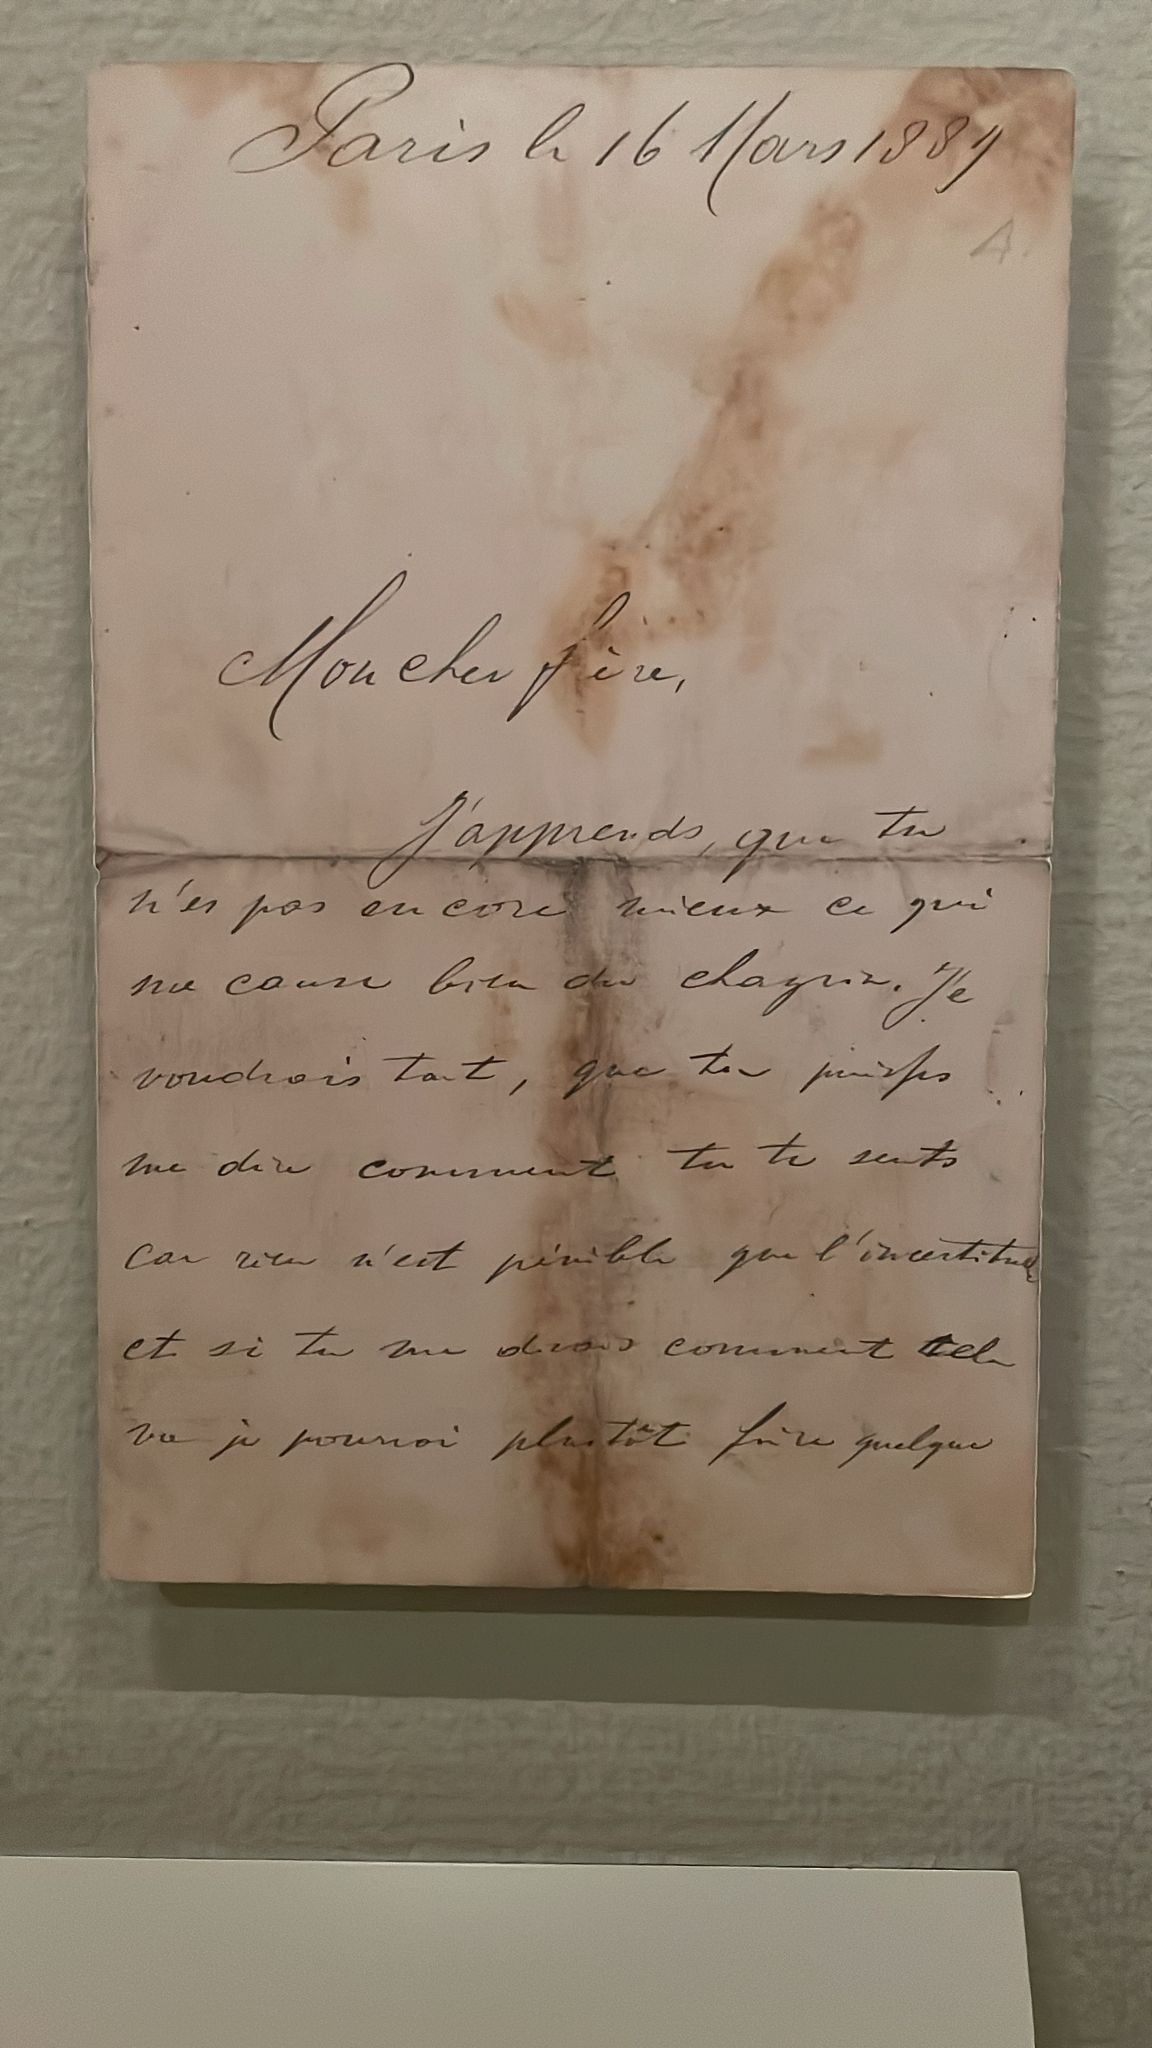 Paris le 16 Mars 1889
4.
Mon cher frère,
J'apprends, que tu
n'es pas encore mieux ce qui
me cause bien du chagrin. Je
voudrais tant, que tu puisses
me dire comment tu te sents
car rien n'est pénible que l'incertitude
et si tu me disais comment cela
va je pourrai plustôt faire quelque